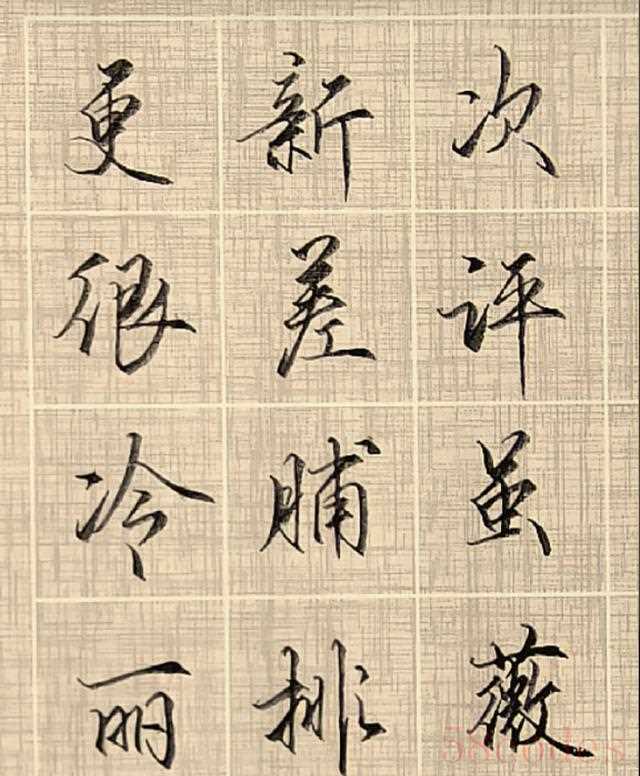 更新次
很差评
冷脯虽
丽排薇